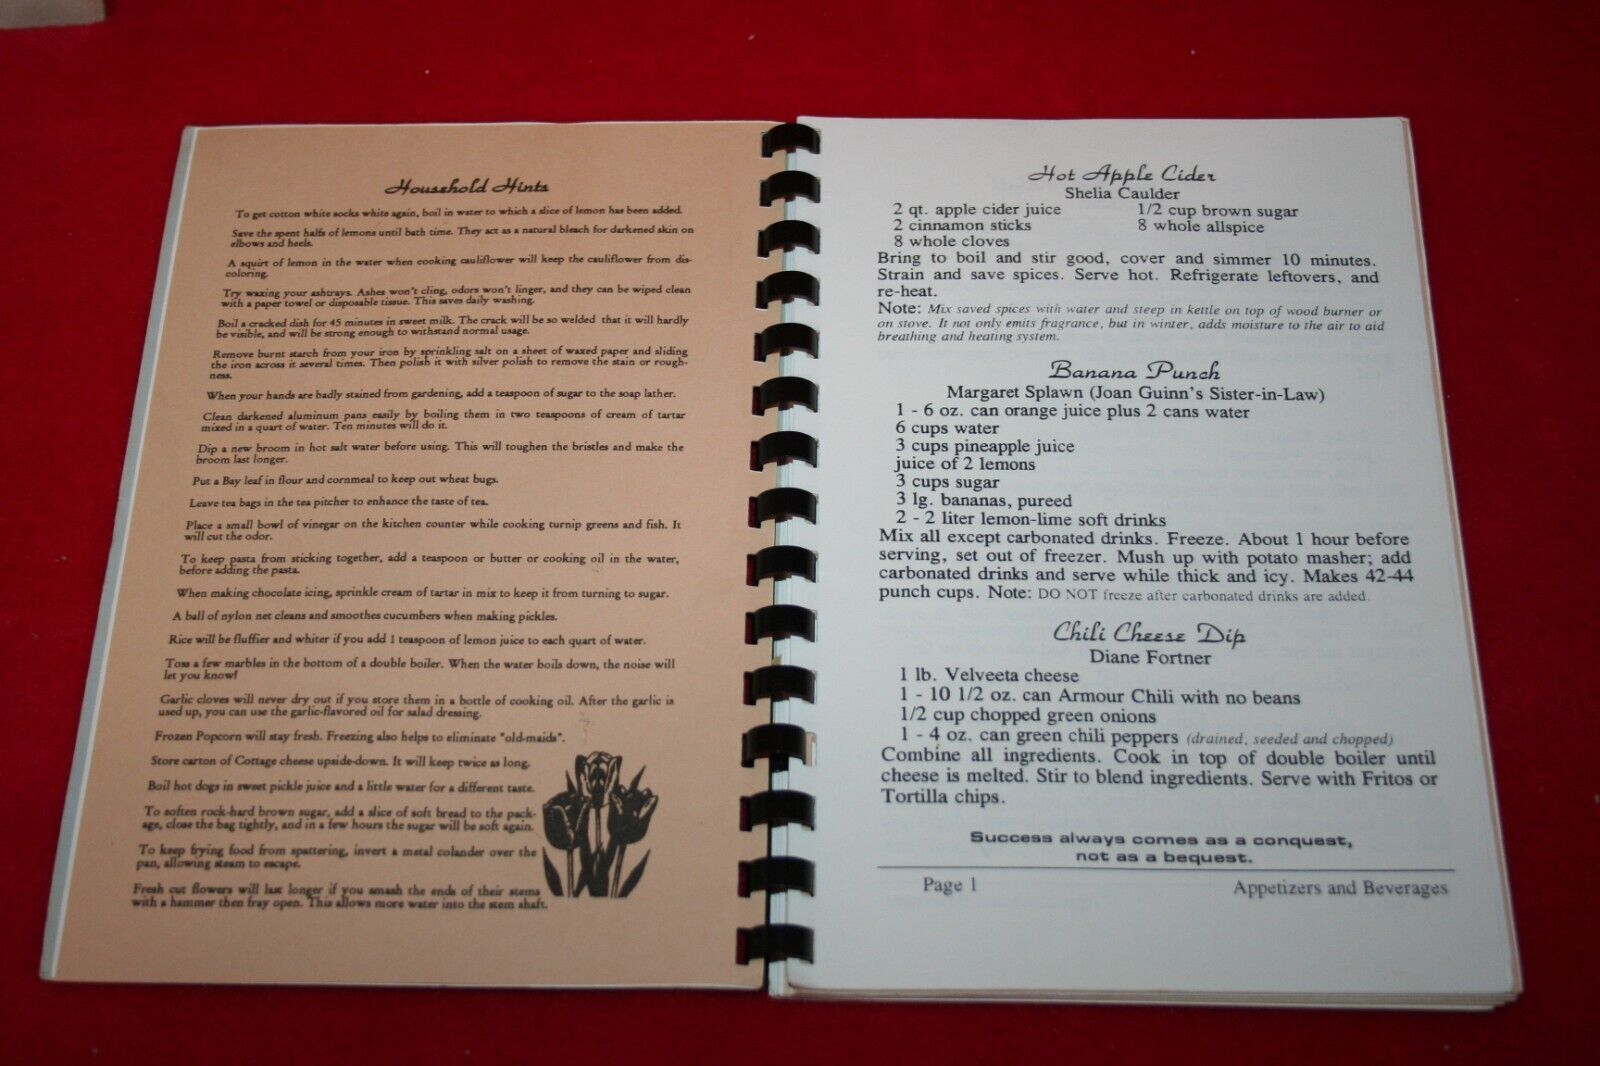 Household Hints
To get cotton white socks white again, boil in water to which a slice of lemon has been added.
Save the spent halfs of lemons until bath time. They act as a natural bleach for darkened skin on
elbows and heels.
A squirt of lemon in the water when cooking cauliflower will keep the cauliflower from dis-
coloring.
Try waxing your ashtrays. Ashes won't cling, odors won't linger, and they can be wiped clean
with a paper towel or disposable tissue. This saves daily washing.
Boil a cracked dish for 45 minutes in sweet milk. The crack will be so welded that it will hardly
be visible, and will be strong enough to withstand normal usage.
Remove burnt starch from your iron by sprinkling salt on a sheet of waxed paper and sliding
the iron across it several times. Then polish it with silver polish to remove the stain or rough-
ness.
When your hands are badly stained from gardening, add a teaspoon of sugar to the soap lather.
Clean darkened aluminum pans easily by boiling them in two teaspoons of cream of tartar
mixed in a quart of water. Ten minutes will do it.
Dip a new broom in hot salt water before using. This will toughen the bristles and make the
broom last longer.
Put a Bay leaf in flour and cornmeal to keep out wheat bugs.
Leave tea bags in the tea pitcher to enhance the taste of tea.
Place a small bowl of vinegar on the kitchen counter while cooking turnip greens and fish. It
will cut the odor.
To keep pasta from sticking together, add a teaspoon or butter or cooking oil in the water,
before adding the pasta.
When making chocolate icing, sprinkle cream of tartar in mix to keep it from turning to sugar.
A ball of nylon net cleans and smoothes cucumbers when making pickles.
Rice will be fluffier and whiter if you add 1 teaspoon of lemon juice to each quart of water.
Toss a few marbles in the bottom of a double boiler. When the water boils down, the noise will
let you know!
Garlic cloves will never dry out if you store them in a bottle of cooking oil. After the garlic is
used up, you can use the garlic-flavored oil for salad dressing.
Frozen Popcorn will stay fresh. Freezing also helps to eliminate "old-maids".
Store carton of Cottage cheese upside-down. It will keep twice as long.
Boil hot dogs in sweet pickle juice and a little water for a different taste.
To soften rock-hard brown sugar, add a slice of soft bread to the pack-
age, close the bag tightly, and in a few hours the sugar will be soft again.
To keep frying food from spattering, invert a metal colander over the
pan, allowing steam to escape.
Fresh cut flowers will last longer if you smash the ends of their stems
with a hammer then fray open. This allows more water into the stem shaft.
Hot Apple Cider
Shelia Caulder
2 qt. apple cider juice 1/2 cup brown sugar
2 cinnamon sticks 8 whole allspice
8 whole cloves
Bring to boil and stir good, cover and simmer 10 minutes.
Strain and save spices. Serve hot. Refrigerate leftovers, and
re-heat.
Note: Mix saved spices with water and steep in kettle on top of wood burner or
on stove. It not only emits fragrance, but in winter, adds moisture to the air to aid
breathing and heating system.
Banana Punch
Margaret Splawn (Joan Guinn's Sister-in-Law)
1 - 6 oz. can orange juice plus 2 cans water
6 cups water
3 cups pineapple juice
juice of 2 lemons
3 cups sugar
3 lg. bananas, pureed
2 - 2 liter lemon-lime soft drinks
Mix all except carbonated drinks. Freeze. About 1 hour before
serving, set out of freezer. Mush up with potato masher; add
carbonated drinks and serve while thick and icy. Makes 42-44
punch cups. Note: DO NOT freeze after carbonated drinks are added.
Chili Cheese Dip
Diane Fortner
1 lb. Velveeta cheese
1 - 10 1/2 oz. can Armour Chili with no beans
1/2 cup chopped green onions
1 - 4 oz. can green chili peppers (drained, seeded and chopped)
Combine all ingredients. Cook in top of double boiler until
cheese is melted. Stir to blend ingredients. Serve with Fritos or
Tortilla chips.
Success always comes as a conquest,
not as a bequest.
Page 1 Appetizers and Beverages